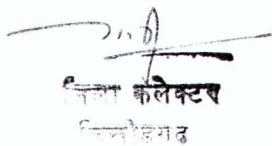 जिला कलेक्टर
चित्तौड़गढ़